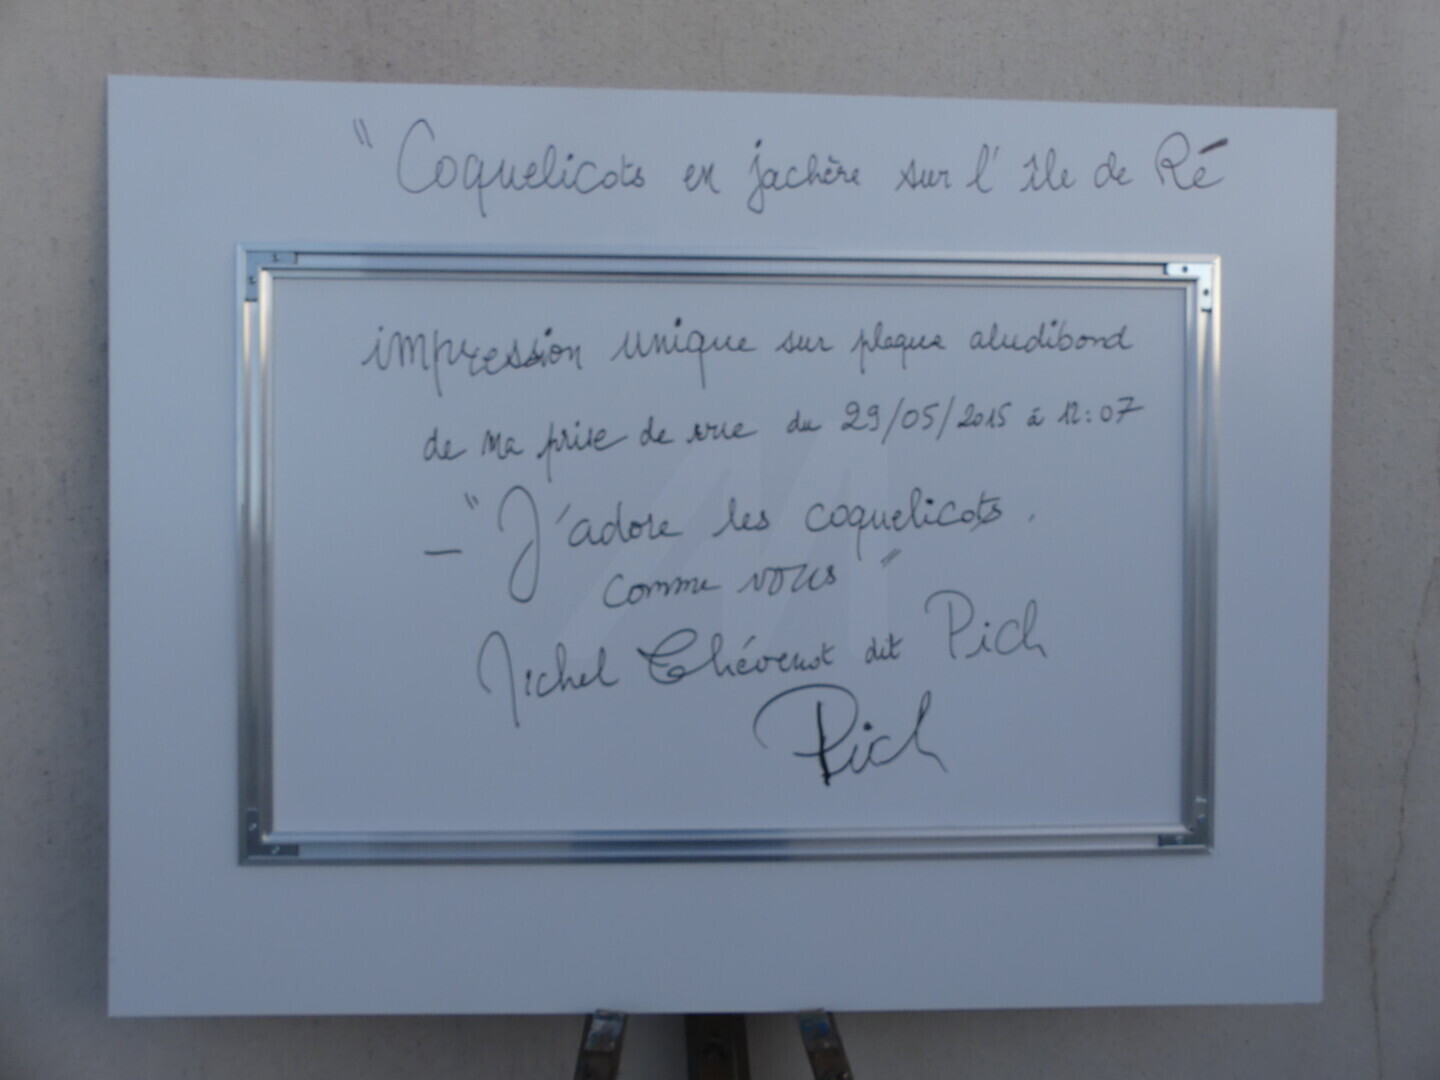 " Coquelicots en jachère sur l'île de Ré
impression unique sur plaque aludibond
de ma prise de vue du 29/05/2015 à 12:07
— " J'adore les coquelicots.
comme vous "
Michel Thévenot dit Pich
Pich